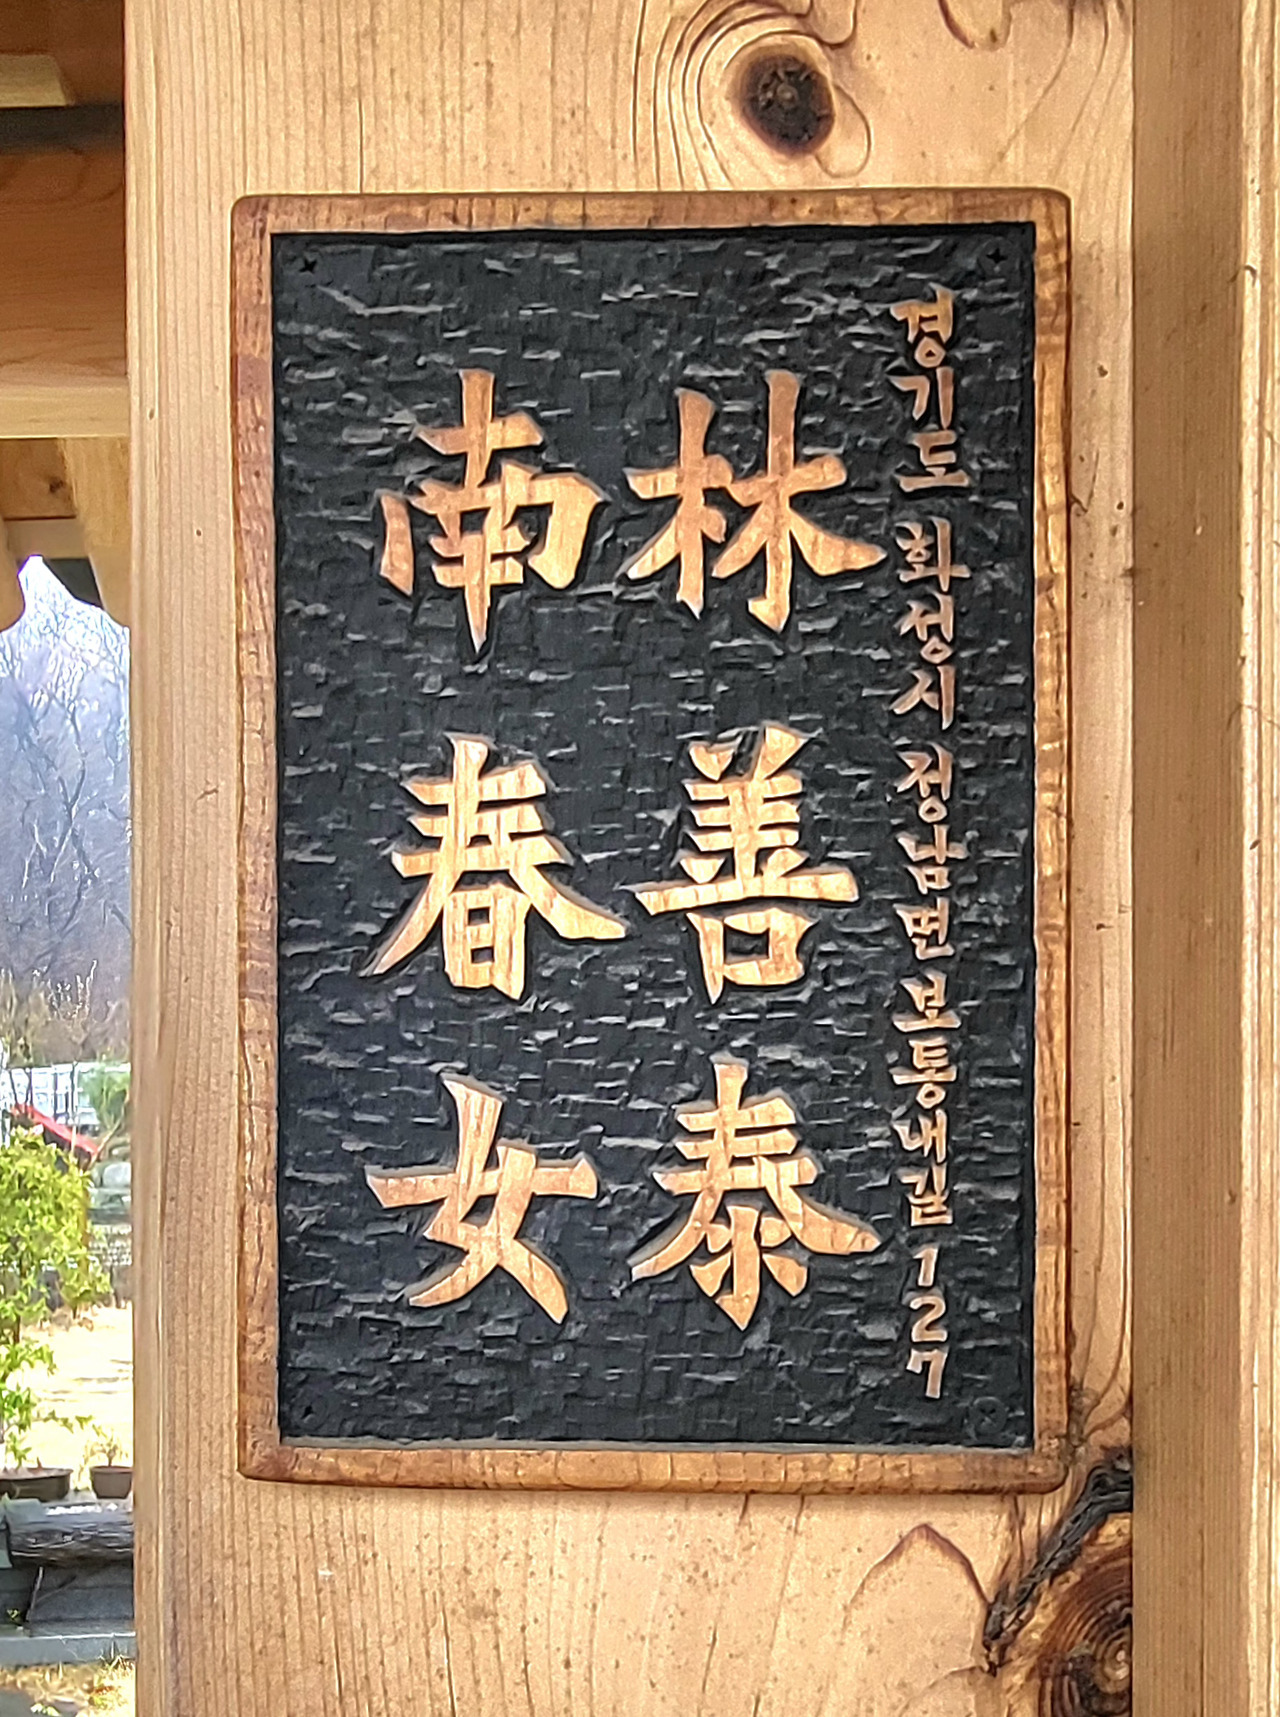 경기도 화성시 정남면 보통내길 127
林善泰
南春女